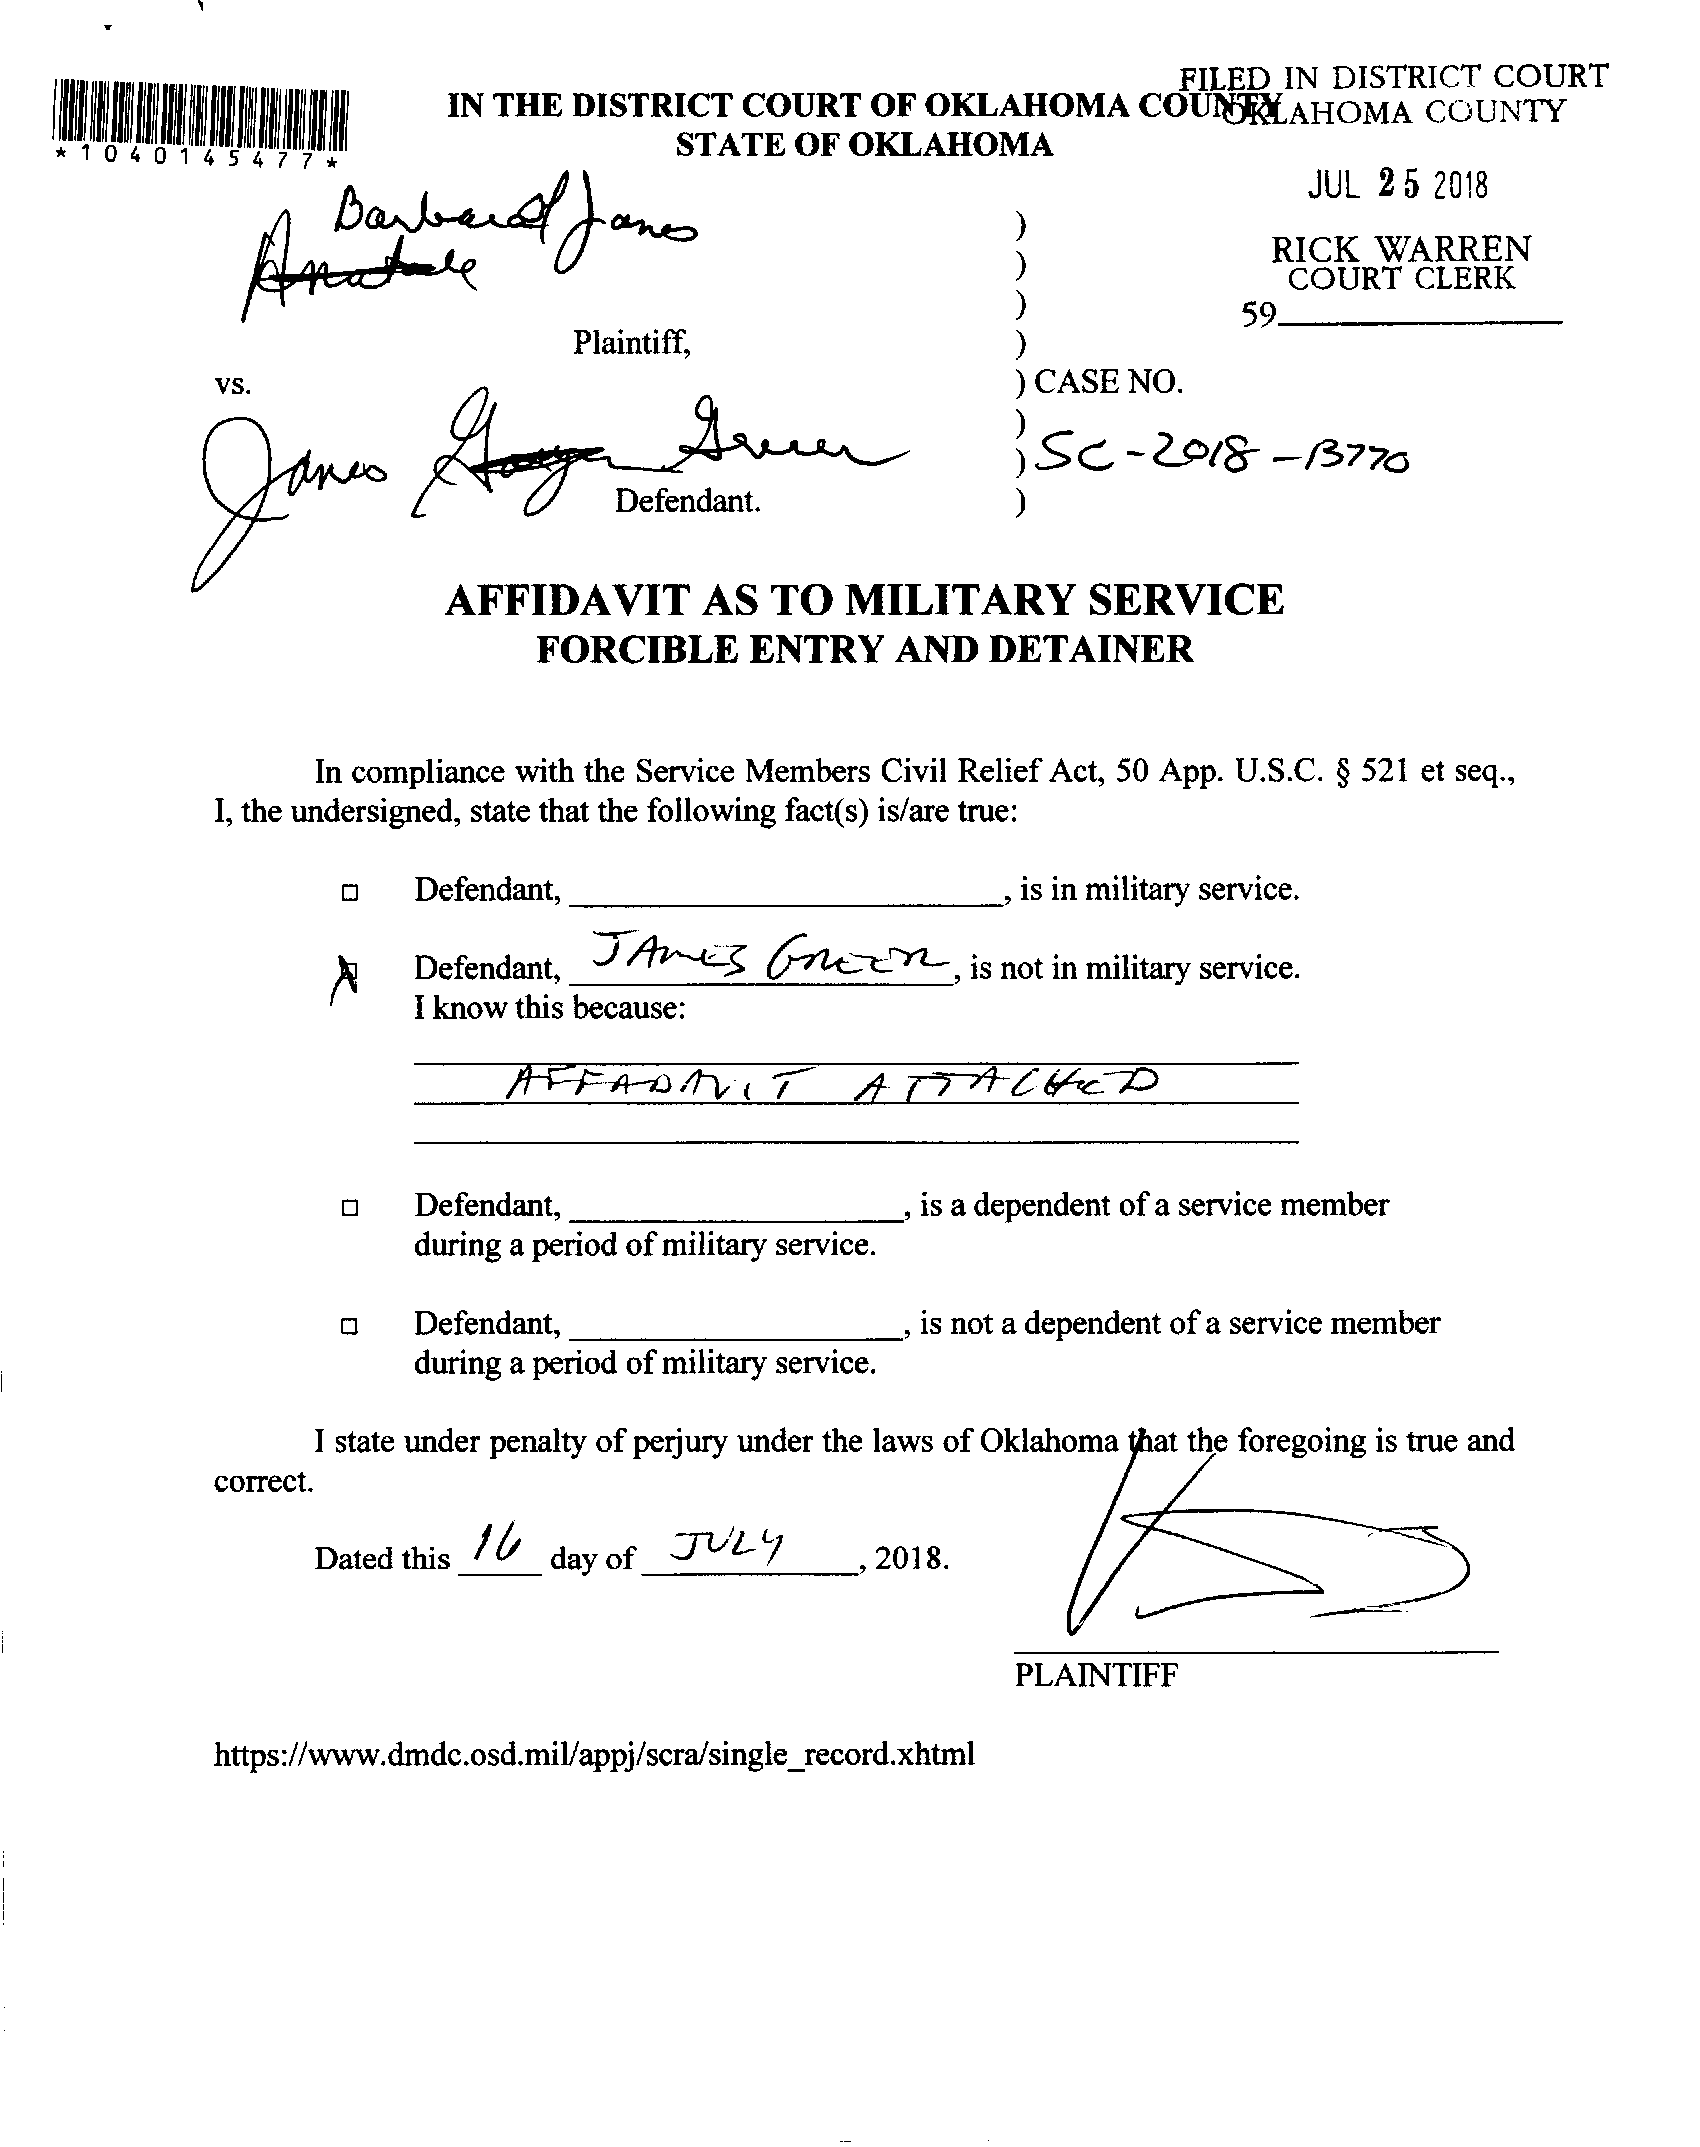 FILED IN DISTRICT COURT
OKLAHOMA COUNTY
IN THE DISTRICT COURT OF OKLAHOMA COUNTY
STATE OF OKLAHOMA
*1040145477*
JUL 25 2018
RICK WARREN
COURT CLERK
59
Barbara Janes
Plaintiff,
vs.
) CASE NO.
James Green
SC-2018-13770
Defendant.
AFFIDAVIT AS TO MILITARY SERVICE
FORCIBLE ENTRY AND DETAINER
In compliance with the Service Members Civil Relief Act, 50 App. U.S.C. § 521 et seq.,
I, the undersigned, state that the following fact(s) is/are true:
Defendant, , is in military service.
Defendant, JAMES GREEN, is not in military service.
I know this because:
AFFADAVIT ATTACHED
Defendant, , is a dependent of a service member
during a period of military service.
Defendant, , is not a dependent of a service member
during a period of military service.
I state under penalty of perjury under the laws of Oklahoma that the foregoing is true and
correct.
Dated this 16 day of JULY, 2018.
PLAINTIFF
https://www.dmdc.osd.mil/appj/scra/single_record.xhtml